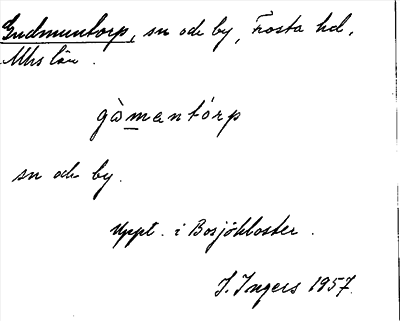 Gudmuntorp, sn och by, Frosta hd,
Mhs län.
gåmantórp
sn och by.
Uppt. i Bosjökloster.
I. Ingers 1957.